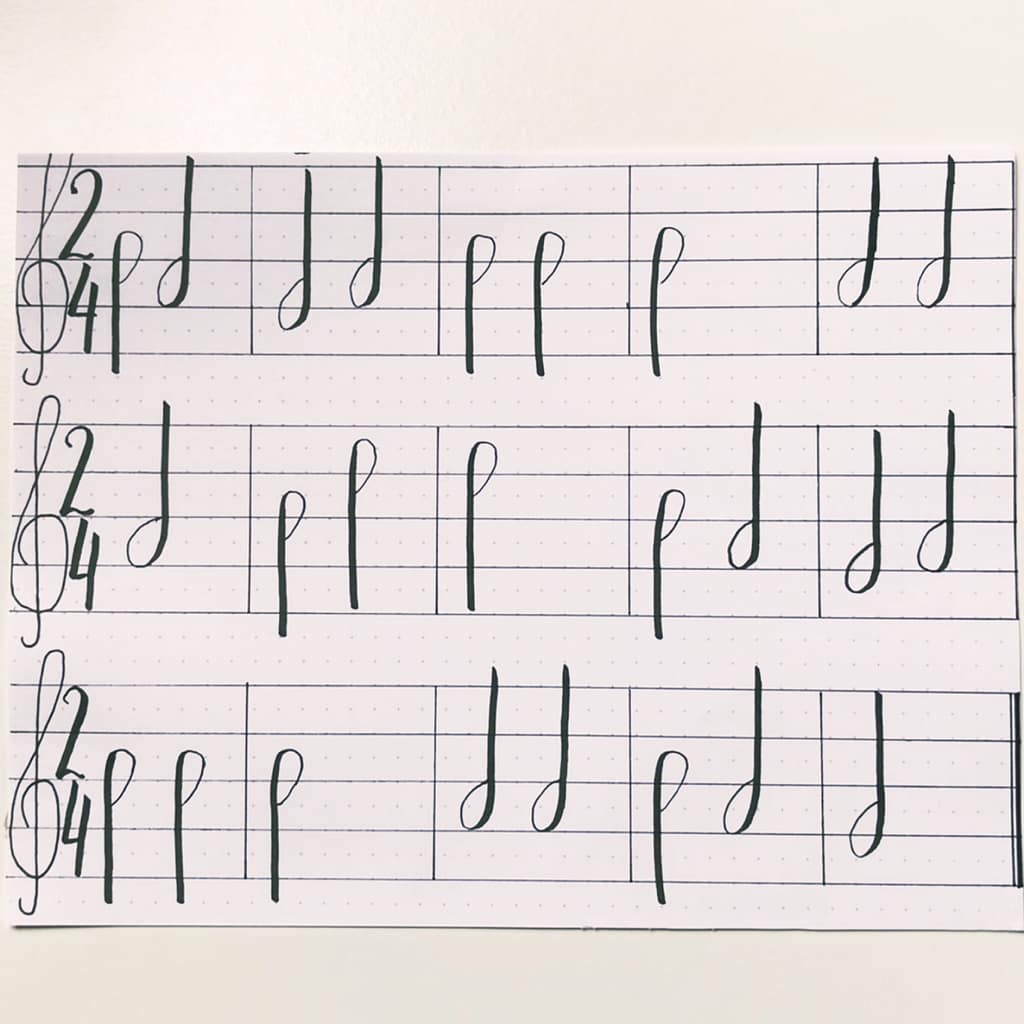 2 4
2 4
2 4